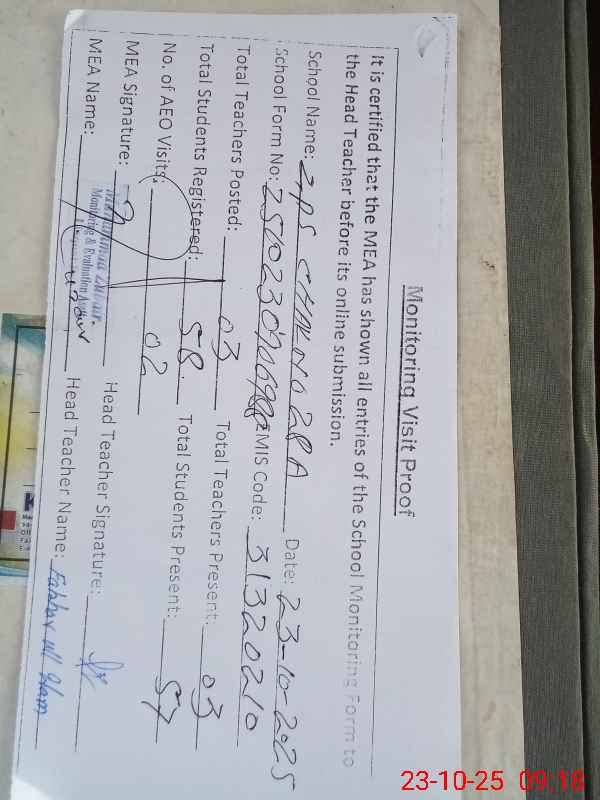 Monitoring Visit Proof
It is certified that the MEA has shown all entries of the School Monitoring Form to
the Head Teacher before its online submission.
School Name: Date: 23-10-2025
School Form No: EMIS Code: 31320210
Total Teachers Posted: 03 Total Teachers Present: 03
Total Students Registered: 58 Total Students Present: 57
No. of AEO Visits: 02
MEA Signature: Head Teacher Signature:
Monitoring & Evaluation
MEA Name: Head Teacher Name:
23-10-25 09:18